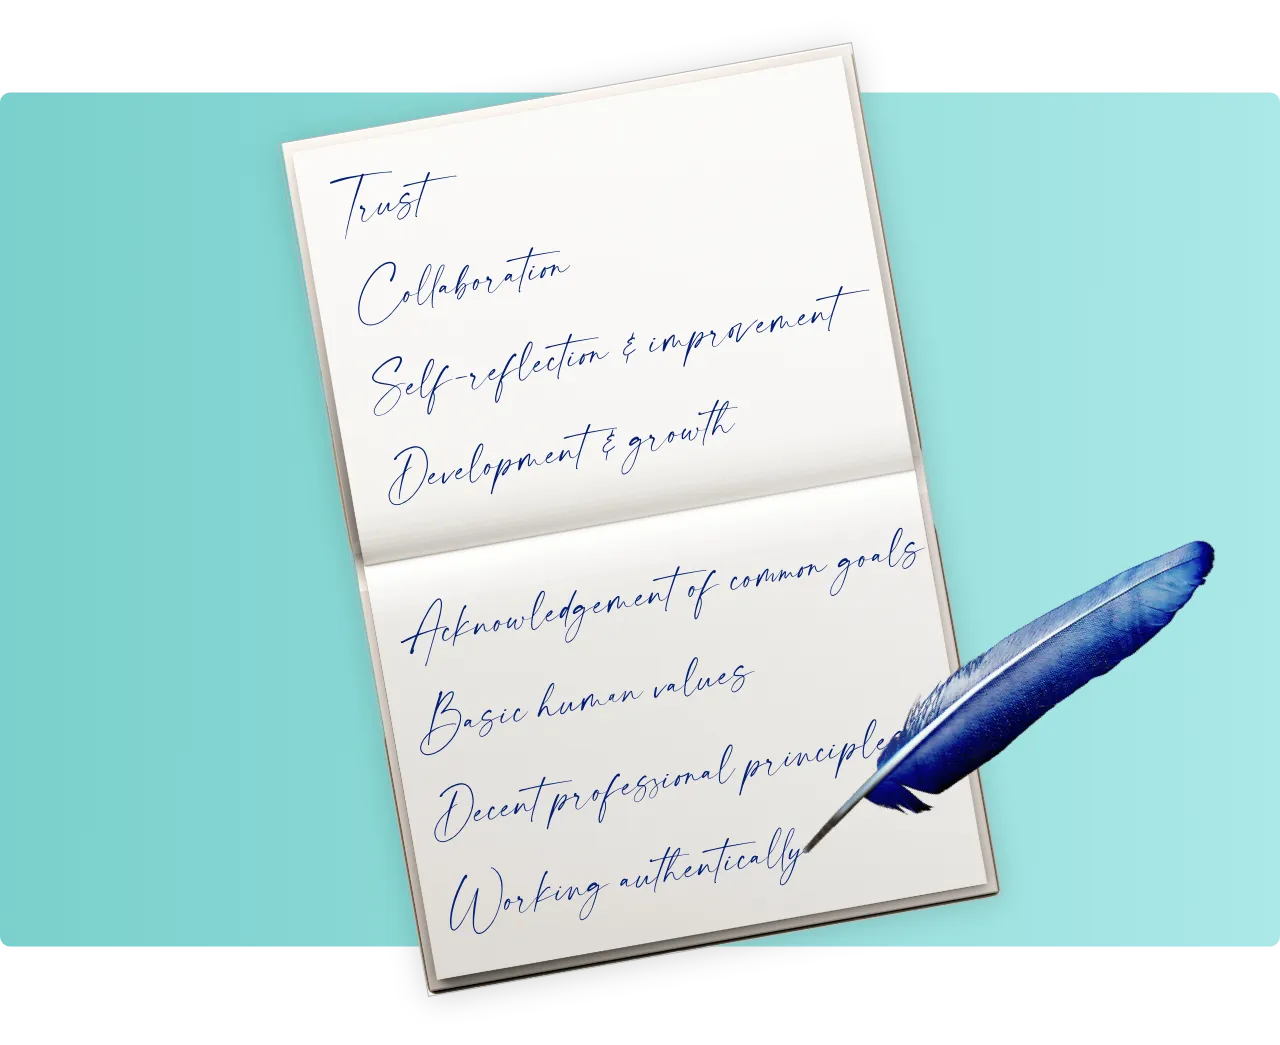 Trust
Collaboration
Self-reflection & improvement
Development & growth
Acknowledgement of common goals
Basic human values
Decent professional principles
Working authentically